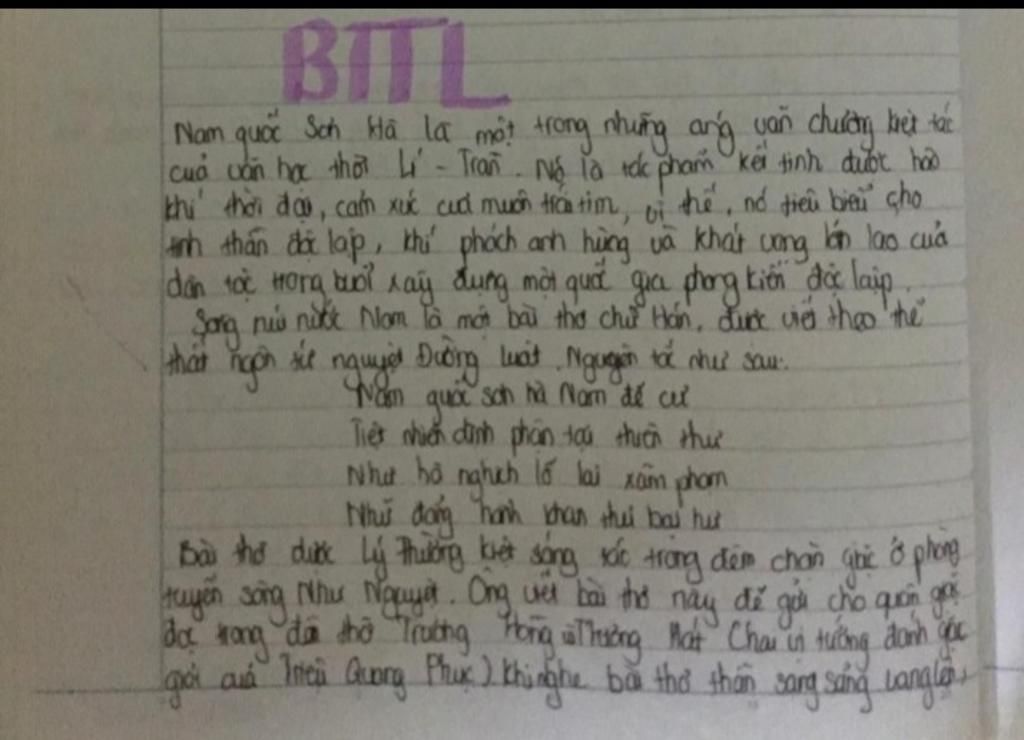 BTTL
Nam quốc Sơn Hà là một trong những áng văn chương kiệt tác
cuả văn học thời Lí - Trần. Nó là tác phẩm kết tinh được hào
khí thời đại, cảm xúc của muôn trái tim, vì thế, nó tiêu biểu cho
tinh thần độc lập, khí phách anh hùng và khát vọng lớn lao của
dân tộc trong buổi xây dựng một quốc gia phong kiến độc lập.
Sông núi nước Nam là một bài thơ chữ Hán, được viết theo thể
thất ngôn tứ nguyệt Đường luật. Nguyên tác như sau:
Nam quốc sơn hà Nam đế cư
Tiệt nhiên định phận tại thiên thư
Như hà nghịch lỗ lai xâm phạm
Nhữ đẳng hành khan thủ bại hư
Bài thơ được Lý Thường Kiệt sáng tác trong đêm chặn giặc ở phòng
tuyến sông Như Nguyệt. Ông viết bài thơ này để gửi cho quân giặc
đọc trong đền thờ Trương Hống và Trương Hát (hai vị tướng đánh giặc
giỏi của Triệu Quang Phục) khi nghe bài thơ thần sang sảng vang lên,